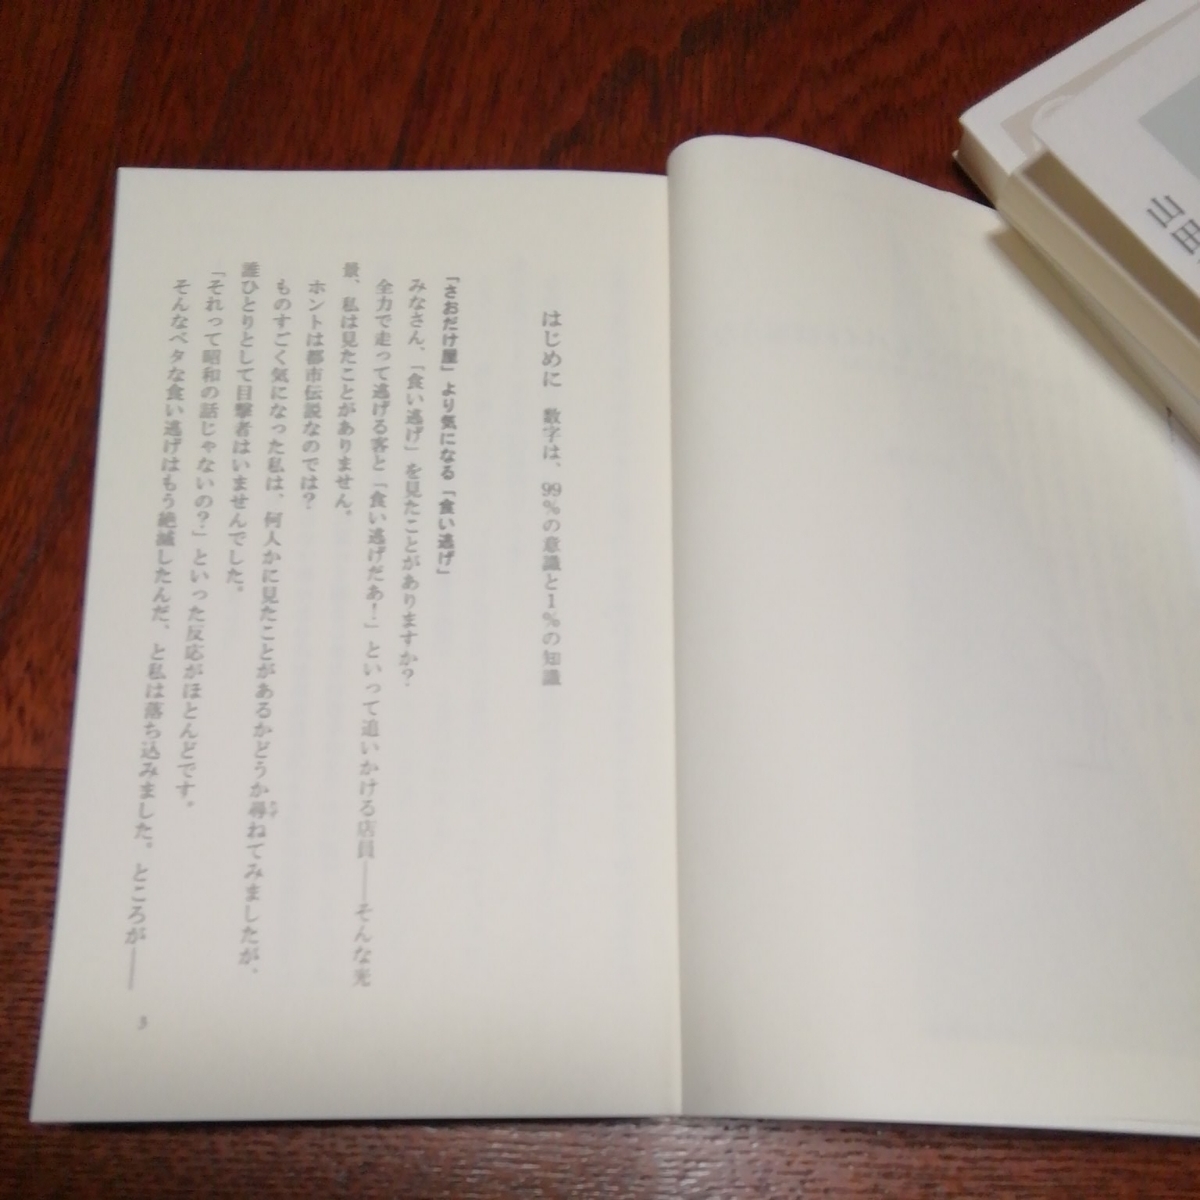 はじめに　数字は、99%の意識と1%の知識
「さおだけ屋」より気になる「食い逃げ」
みなさん、「食い逃げ」を見たことがありますか？
全力で走って逃げる客と「食い逃げだあ！」といって追いかける店員――そんな光
景、私は見たことがありません。
ホントは都市伝説なのでは？
ものすごく気になった私は、何人かに見たことがあるかどうか尋ねてみましたが、
たず
誰ひとりとして目撃者はいませんでした。
「それって昭和の話じゃないの？」といった反応がほとんどです。
そんなベタな食い逃げはもう絶滅したんだ、と私は落ち込みました。ところが――
3
山田